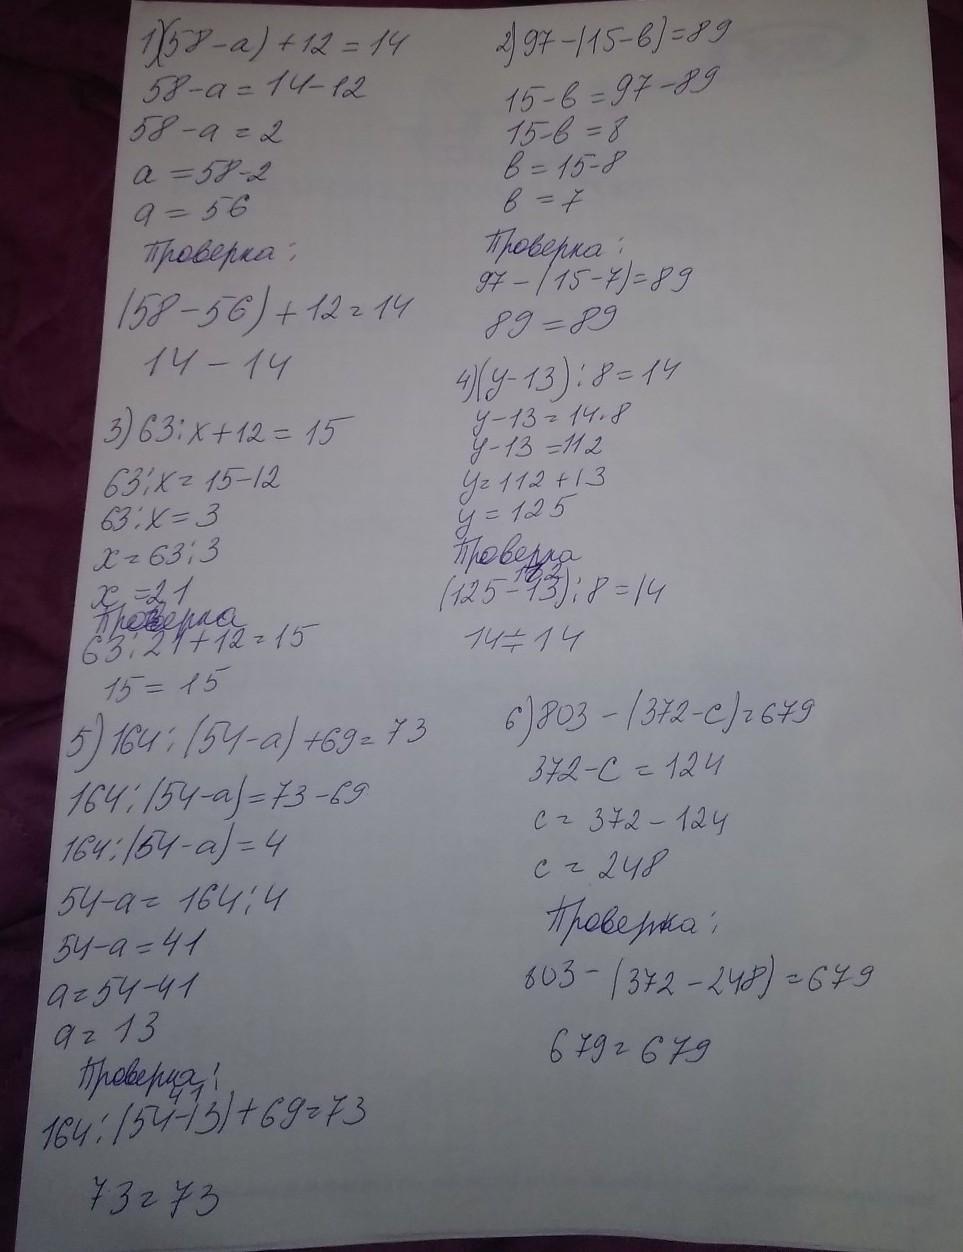 1)(58-a)+12=14
58-a=14-12
58-a=2
a=58-2
a=56
Проверка:
(58-56)+12=14
14-14
2)97-(15-в)=89
15-в=97-89
15-в=8
в=15-8
в=7
Проверка:
97-(15-7)=89
89=89
3)63:х+12=15
63:х=15-12
63:х=3
х=63:3
х=21
Проверка
63:21+12=15
15=15
4)(у-13):8=14
у-13=14·8
у-13=112
у=112+13
у=125
Проверка
112
(125-13):8=14
14=14
5)164:(54-a)+69=73
164:(54-a)=73-69
164:(54-a)=4
54-a=164:4
54-a=41
a=54-41
a=13
Проверка:
41
164:(54-13)+69=73
73=73
6)803-(372-с)=679
372-с=124
с=372-124
с=248
Проверка:
803-(372-248)=679
679=679